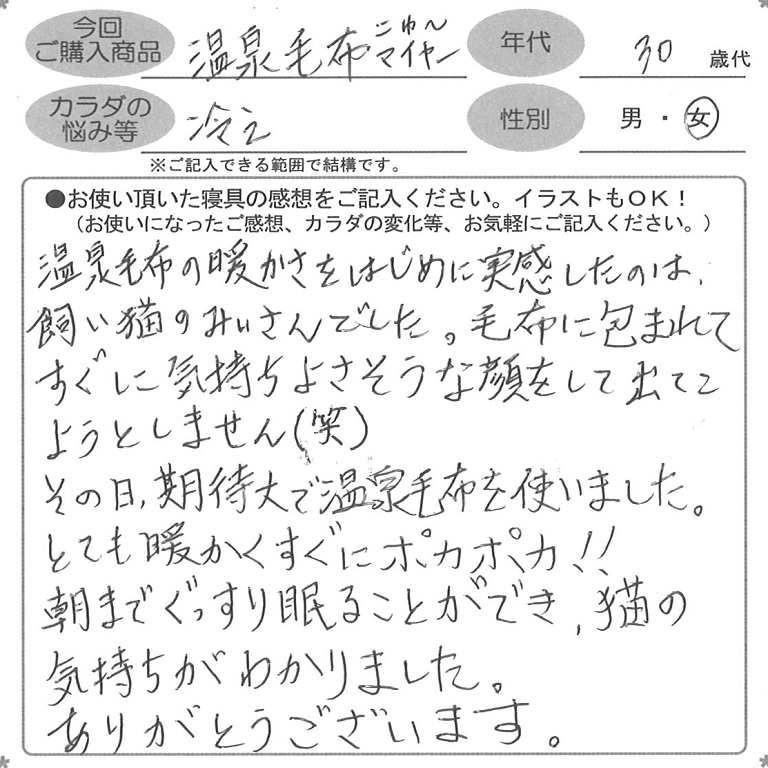 今回
ご購入商品
温泉毛布 マイヤー
年代
30 歳代
カラダの
悩み等
冷え
性別
男・女
※ご記入できる範囲で結構です。
●お使い頂いた寝具の感想をご記入ください。イラストもOK！
（お使いになったご感想、カラダの変化等、お気軽にご記入ください。）
温泉毛布の暖かさをはじめに実感したのは、
飼い猫のみぃさんでした。毛布に包まれて
すぐに気持ちよさそうな顔をして出てこ
ようとしません(笑)
その日、期待大で温泉毛布を使いました。
とても暖かくすぐにポカポカ!!
朝までぐっすり眠ることができ、猫の
気持ちがわかりました。
ありがとうございます。